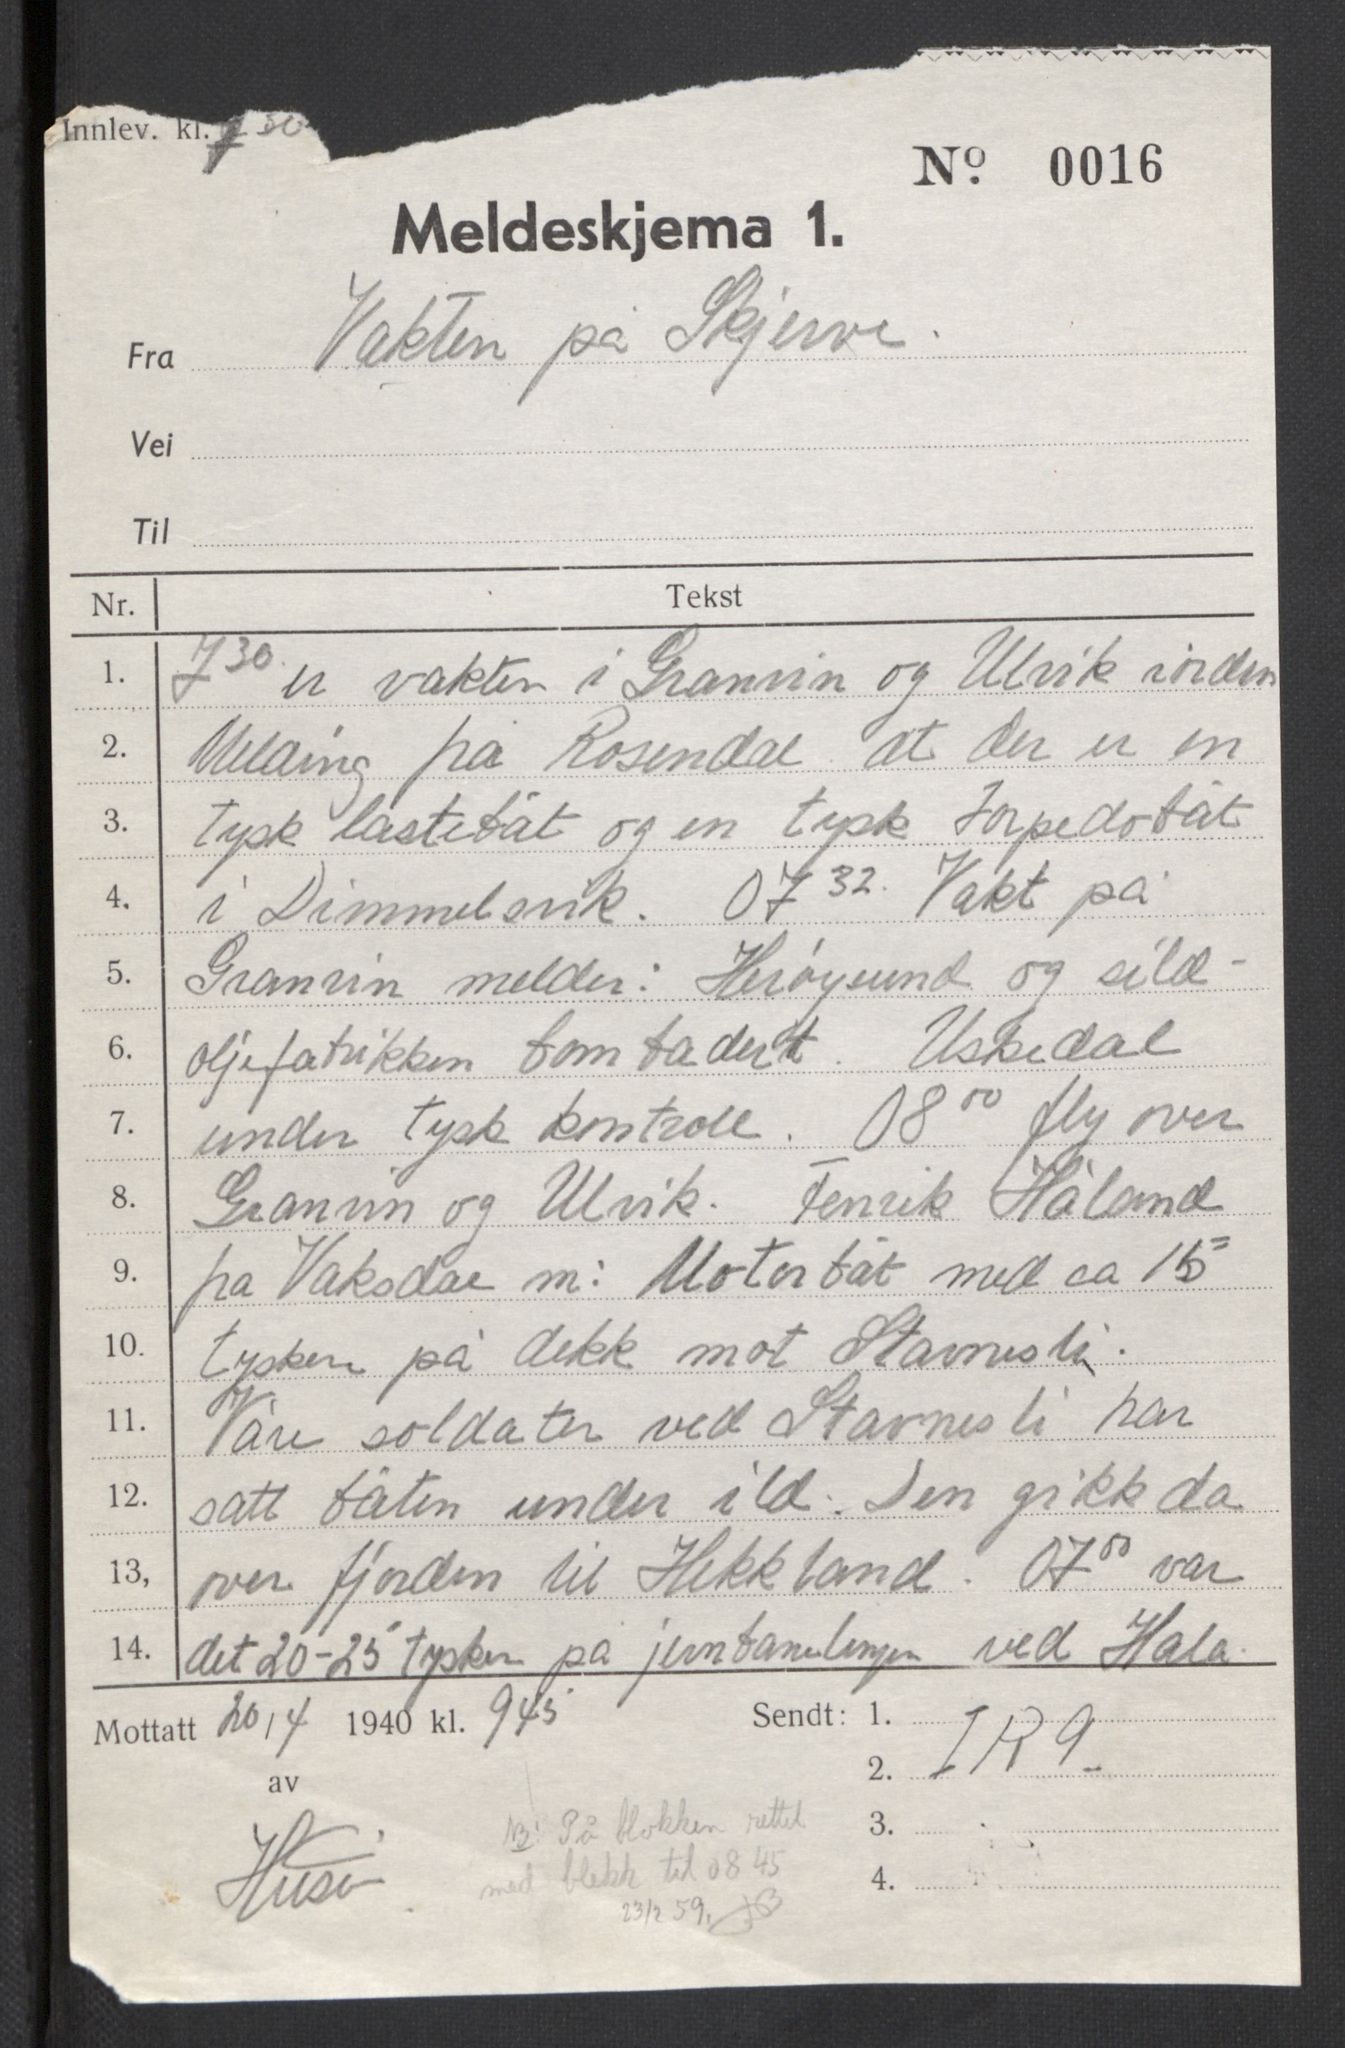 Innlev. kl. 7 30
Nº 0016
Meldeskjema 1.
Fra Vakten på Skjerve.
Vei
Til
Nr. Tekst
1. 7 30 er vakten i Granvin og Ulvik iorden
2. Melding på Rosendal at der er en
3. tysk lastebåt og en tysk torpedobåt
4. i Dimmelsvik. 07 32. Vakt på
5. Granvin melder: Herøysund og sild-
6. oljefabrikken bombadert. Uskedal
7. under tysk kontroll. 08 00 fly over
8. Granvin og Ulvik. Fenrik Håland
9. på Vaksdal m: Motorbåt med ca 15
10. tyskere på dekk mot Stavnesli.
11. Våre soldater ved Stavnesli har
12. satt båten under ild. Den gikk da
13, over fjorden til Hekkland. 07 00 var
14. det 20-25 tysker på jernbanelinjen ved Hala.
Mottatt 20/4 1940 kl. 945 Sendt: 1.
av 2. IR 9.
NB! På blokken rettet 3.
med blekk til 08 45 4.
23/2 59.